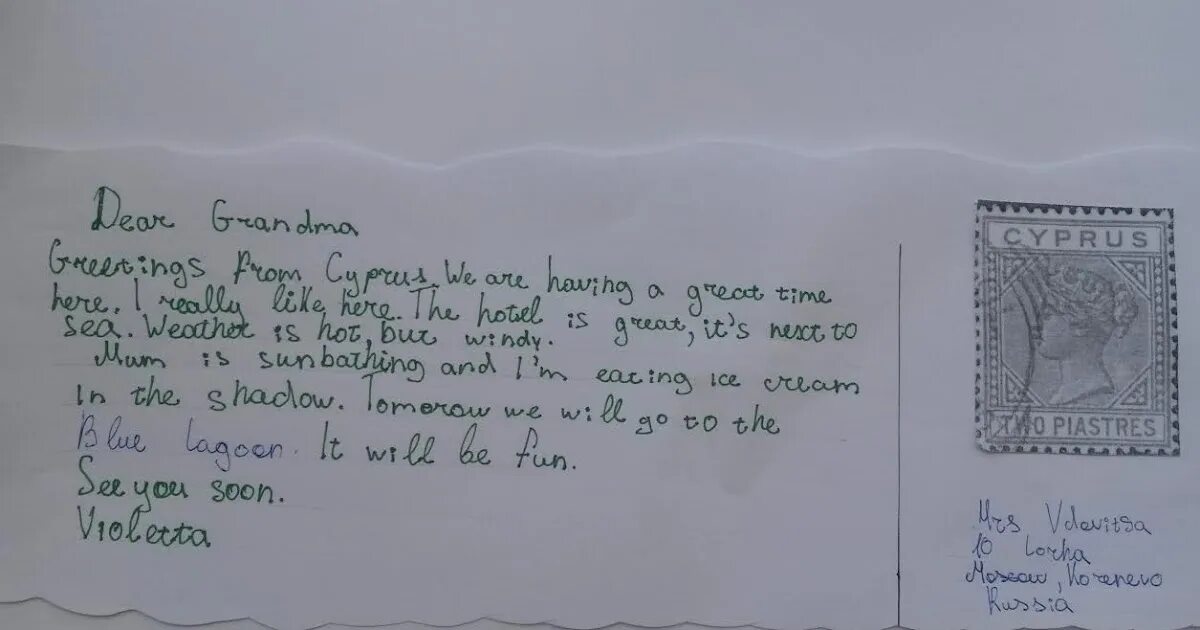 Dear Grandma
Greetings from Cyprus. We are having a great time
here. I really like here. The hotel is great, it's next to
sea. Weather is hot, but windy.
Mum is sunbathing and I'm eating ice cream
in the shadow. Tomorow we will go to the
Blue Lagoon. It will be fun.
See you soon.
Violetta
CYPRUS
TWO PIASTRES
Mrs Vdovitsa
10 Lorha
Moscow, Korenevo
Russia